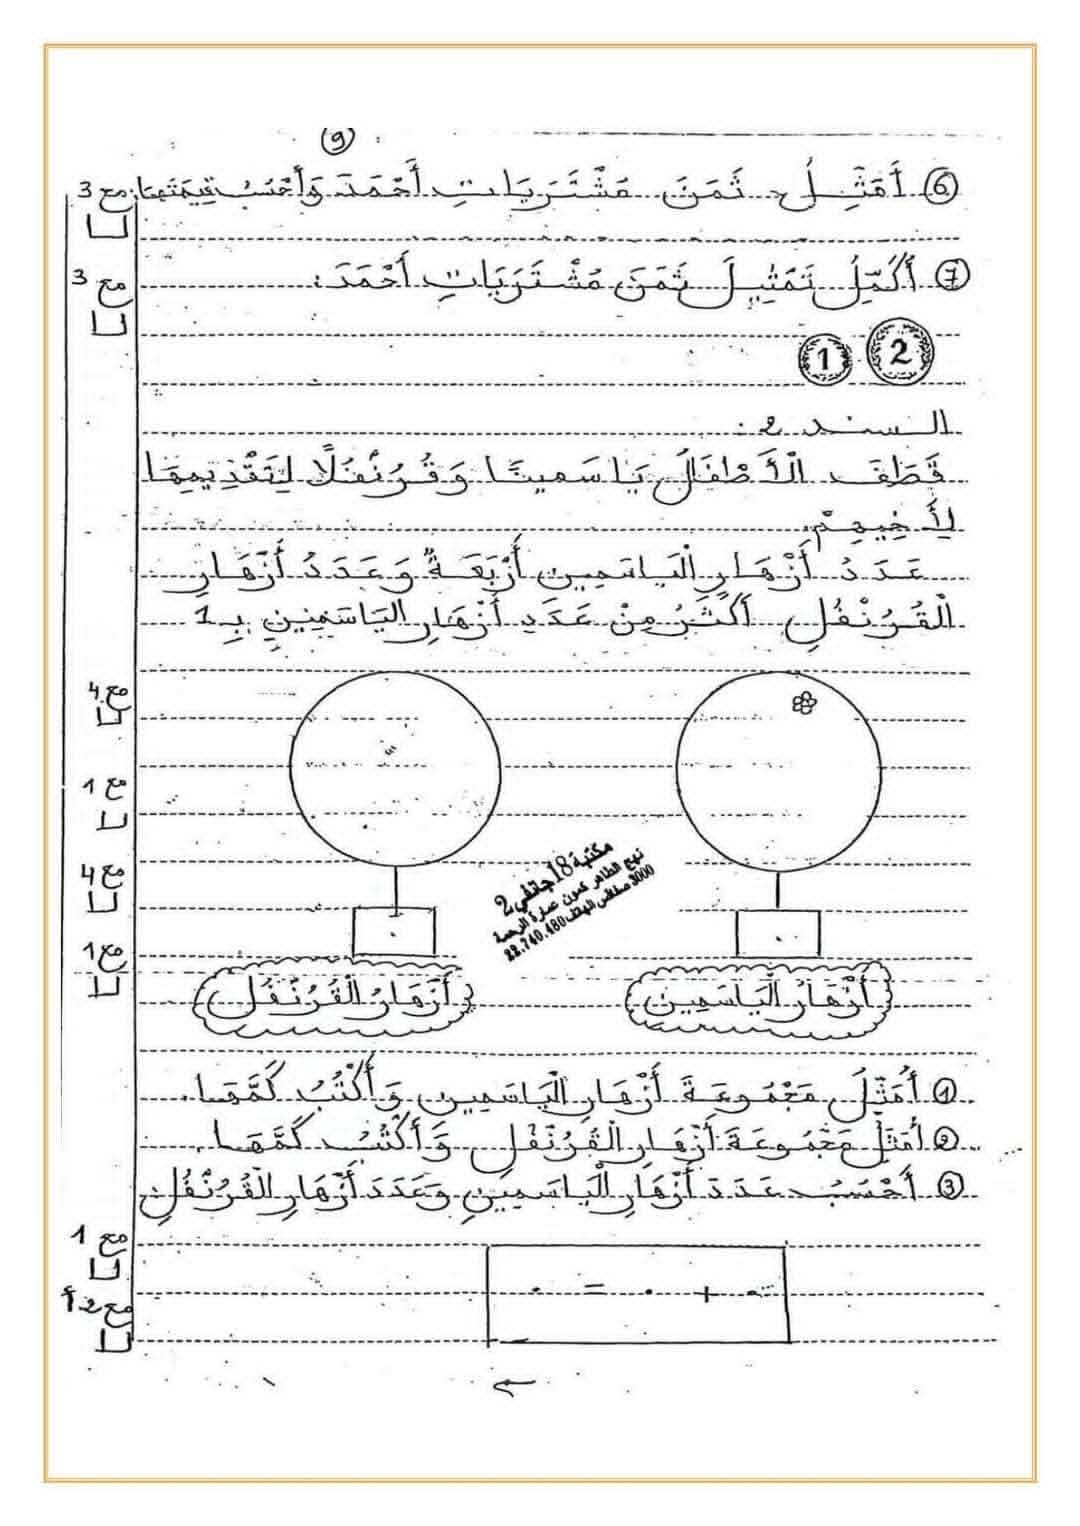 9
⑥ أُمَثِّلُ ثَمَنَ مُشْتَرَيَاتِ أَحْمَدَ وَأَحْسُبُ قِيمَتَهَا: مع 3
⑦ أُكَمِّلُ تَمْثِيلَ ثَمَنَ مُشْتَرَيَاتِ أَحْمَدَ: مع 3
2 1
السند 2:
قَطَفَ الْأَطْفَالُ يَاسَمِينًا وَقُرُنْفُلًا لِتَقْدِيمِهَا
لِأَخِيهِمْ.
عَدَدُ أَزْهَارِ الْيَاسَمِينِ أَرْبَعَةٌ وَعَدَدُ أَزْهَارِ
الْقُرُنْفُلِ أَكْثَرُ مِنْ عَدَدِ أَزْهَارِ الْيَاسَمِينِ بِـ 1
مع 4
مع 1
مع 4
مع 1
مكتبة 18 جانفي 2
نهج الطاهر كمون عمارة الرحمة
3000 صفاقس الهاتف 22.740.480
أَزْهَارُ الْيَاسَمِينِ
أَزْهَارُ الْقُرُنْفُلِ
① أُمَثِّلُ مَجْمُوعَةَ أَزْهَارِ الْيَاسَمِينِ وَأَكْتُبُ كَمَّهَا.
② أُمَثِّلُ مَجْمُوعَةَ أَزْهَارِ الْقُرُنْفُلِ وَأَكْتُبُ كَمَّهَا.
③ أَحْسُبُ عَدَدَ أَزْهَارِ الْيَاسَمِينِ وَعَدَدَ أَزْهَارِ الْقُرُنْفُلِ
مع 1
. + . = .
مع 2 أ